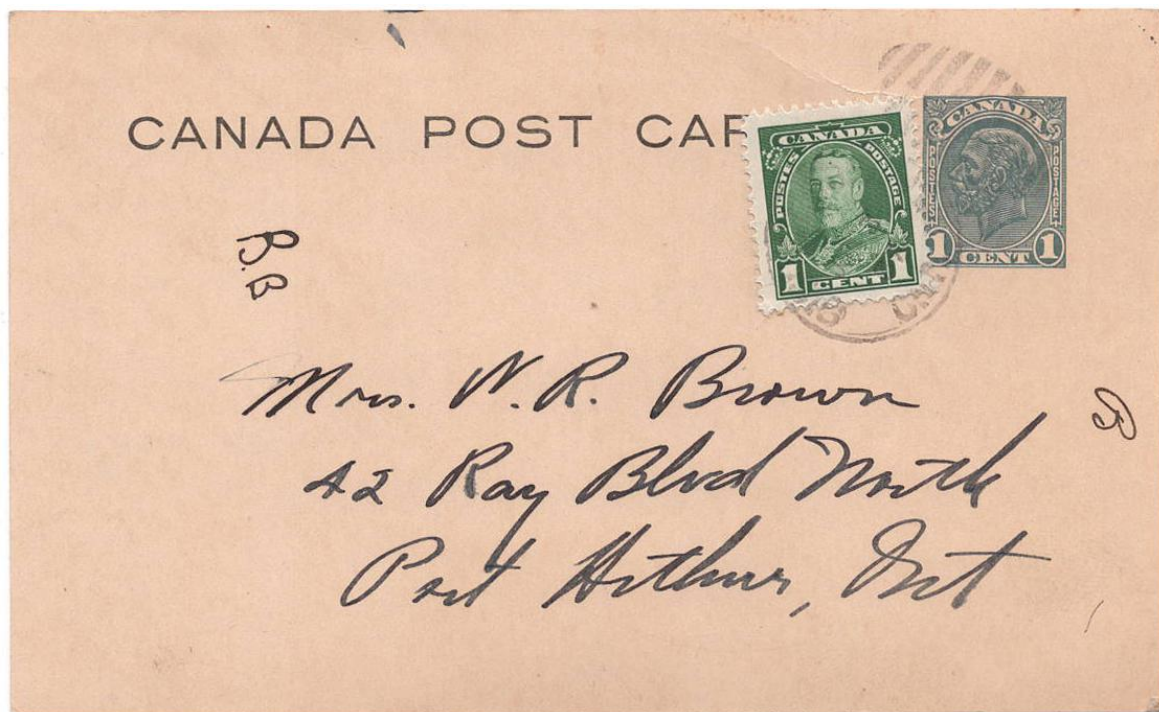 CANADA POST CAR
CANADA
POSTES POSTAGE
1 CENT 1
CANADA
POSTES POSTAGE
1 CENT 1
B.B
Mrs. W. R. Brown
42 Ray Blvd North
Port Arthur, Ont